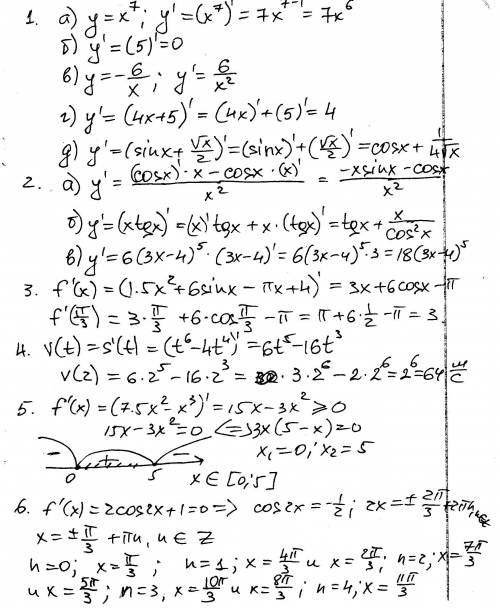 1. а) y = x⁷; y' = (x⁷)' = 7x⁷⁻¹ = 7x⁶
б) y' = (5)' = 0
в) y = -6/x; y' = 6/x²
г) y' = (4x+5)' = (4x)' + (5)' = 4
д) y' = (sinx + √x/2)' = (sinx)' + (√x/2)' = cosx + 1/4√x
2. а) y' = (cosx)'·x - cosx·(x)'/x² = -xsinx - cosx/x²
б) y' = (xtgx)' = (x)'tgx + x·(tgx)' = tgx + x/cos²x
в) y' = 6(3x-4)⁵·(3x-4)' = 6(3x-4)⁵·3 = 18(3x-4)⁵
3. f'(x) = (1.5x² + 6sinx - πx + 4)' = 3x + 6cosx - π
f'(π/3) = 3·π/3 + 6·cosπ/3 - π = π + 6·1/2 - π = 3
4. v(t) = s'(t) = (t⁶ - 4t⁴)' = 6t⁵ - 16t³
v(2) = 6·2⁵ - 16·2³ = 3·2⁶ - 2·2⁶ = 2⁶ = 64 м/с
5. f'(x) = (7.5x² - x³)' = 15x - 3x² ⩾ 0
15x - 3x² = 0 <=> 3x(5-x) = 0
x₁ = 0; x₂ = 5
- + -
0 5 x ∈ [0;5]
6. f'(x) = 2cos2x + 1 = 0 => cos2x = -1/2; 2x = ± 2π/3 + 2πn, n∈Z
x = ± π/3 + πn, n ∈ Z
n=0; x = π/3; n=1; x = 4π/3 и x = 2π/3; n=2; x = 7π/3
и x = 5π/3; n=3, x = 10π/3 и x = 8π/3; n=4; x = 11π/3